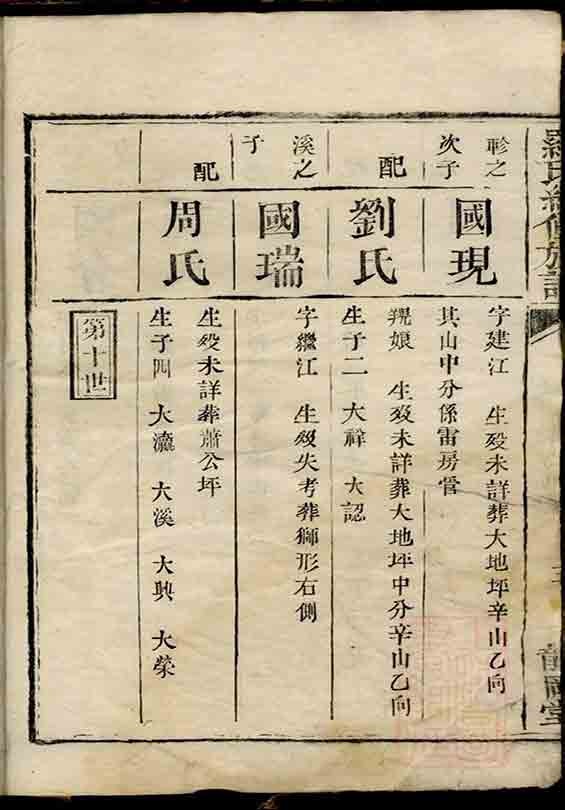 羅氏續修族譜
聆之
次子
國現
字建江 生殁未詳葬大地坪辛山乙向
其山中分係雷房管
配
劉氏
娘 生殁未詳葬大地坪中分辛山乙向
生子二 大祥 大認
溪之
子
國瑞
字繼江 生殁失考葬獅形右側
配
周氏
生殁未詳葬蕭公坪
生子四 大瀛 大溪 大興 大榮
第十世